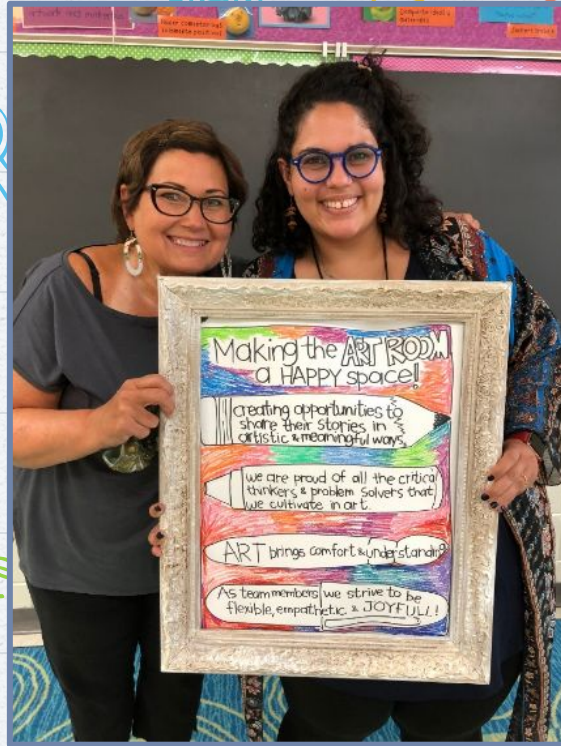 Making the ART ROOM
a HAPPY space!
creating opportunities to
share their stories in
artistic & meaningful ways.
we are proud of all the critical
thinkers & problem solvers that
we cultivate in art.
ART brings comfort & understanding
As team members we strive to be
flexible, empathetic & JOYFULL!